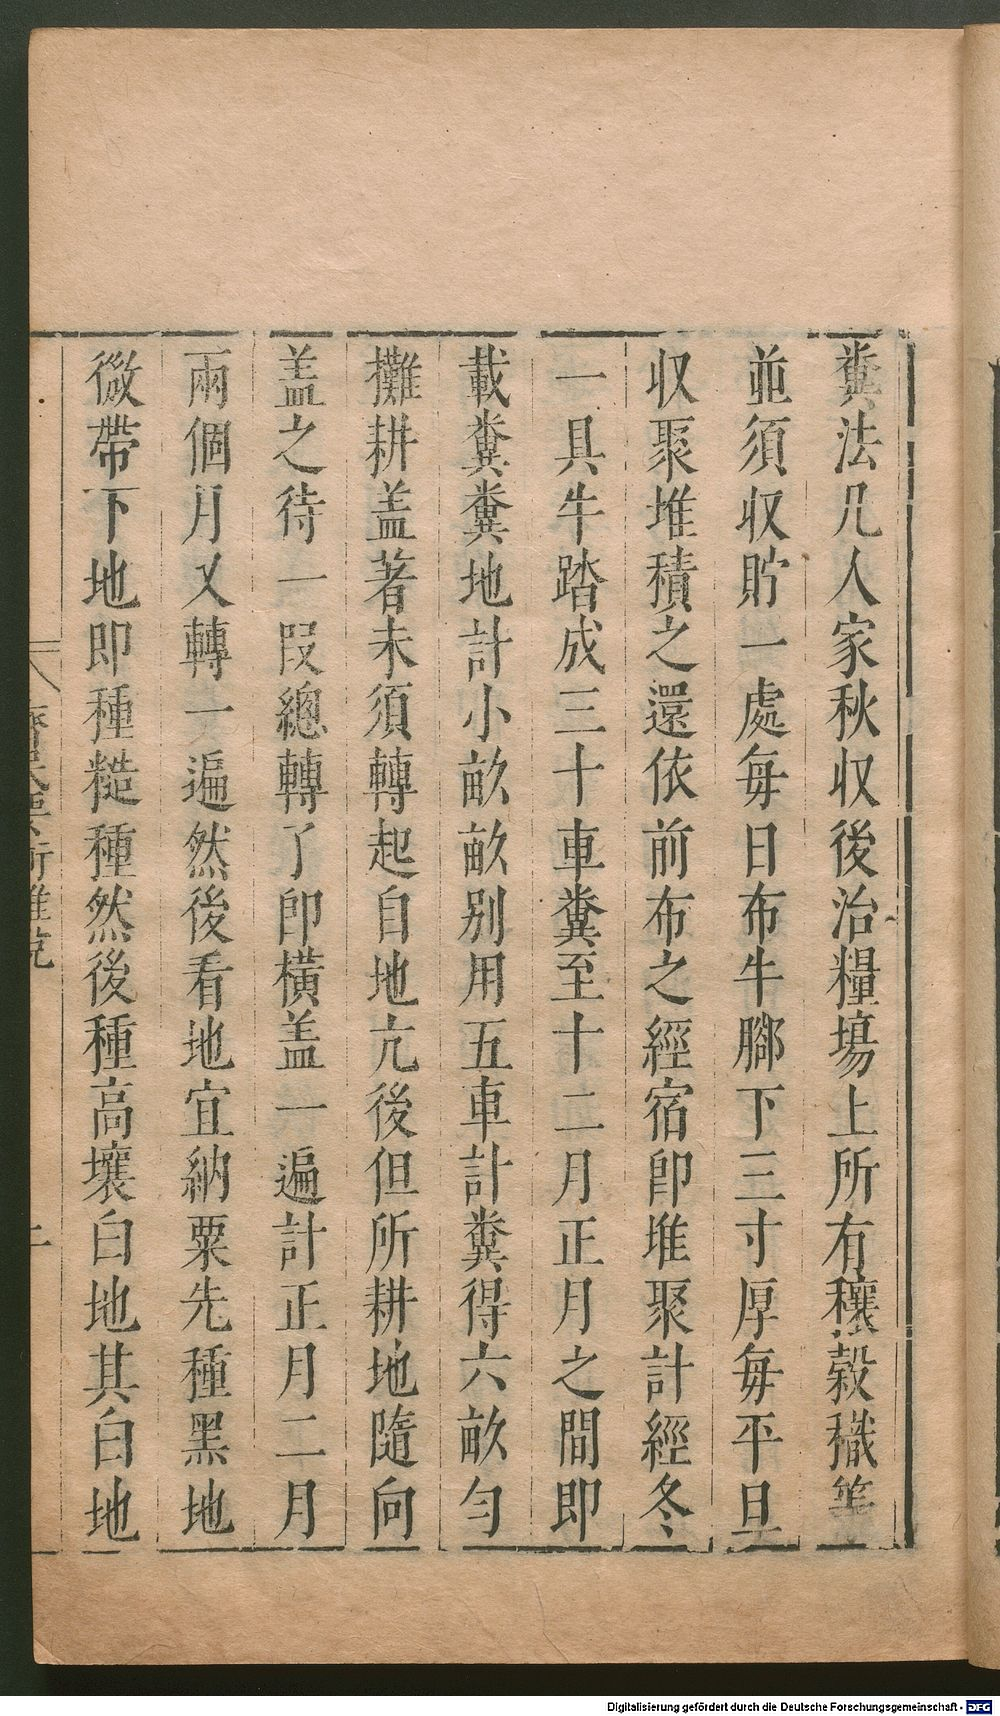 糞法凡人家秋收後治糧塲上所有穰穀穢等
並須収貯一處每日布牛腳下三寸厚每平旦
収聚堆積之還依前布之經宿即堆聚計經冬
一具牛踏成三十車糞至十二月正月之間即
載糞糞地計小畝畝别用五車計糞得六畝匀
攤耕盖著未須轉起自地亢後但所耕地隨向
盖之待一段總轉了即橫盖一遍計正月二月
兩個月又轉一遍然後看地宜納粟先種黑地
微帶下地即種糙種然後種高壤白地其白地
Digitalisierung gefördert durch die Deutsche Forschungsgemeinschaft - DFG